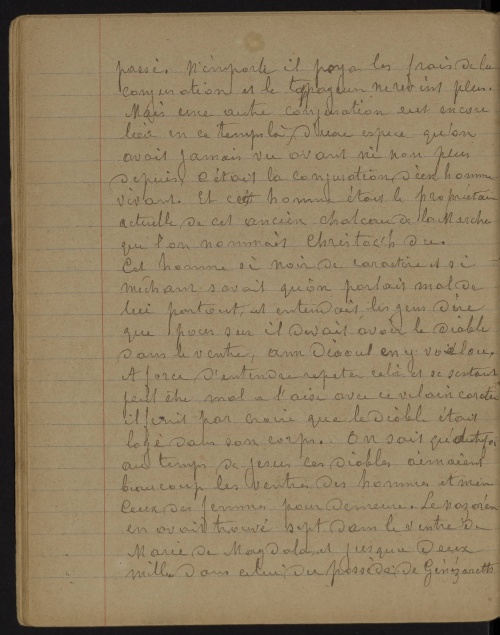 passé. N'importe il paya les frais de la
conjuration et le tappageur ne revint plus.
Mais une autre conjuration eut encore
lieu en ce temps là, d'une espece qu'on
avait jamais vu avant ni non plus
depuis, c'était la conjuration d'un homme
vivant. Et cet homme étais le propriétair
actuelle de cet ancien chateau de la Marche
que l'on nommait Christoc'h du.
Cet homme si noir de caractère et si
méchant savait qu'on parlait mal de
lui partout, et entendait les gens dire
que pour sur il devait avoir le diable
dans le ventre, ann diaoul en y voelou.
A force d'entendre repeter cela et se sentant
peut être mal a l'aise avec ce vilain caractere
il finit par croire que le diable était
logé dans son corps. On sait que
au temps de Jesus les diables aimaient
beaucoup les ventres des hommes et même
ceux des femmes pour demeure. Le nazaréen
en avait trouvé sept dans le ventre de
Marie de Magdala, et jusque deux
mille dans celui du possédé de Génézareth